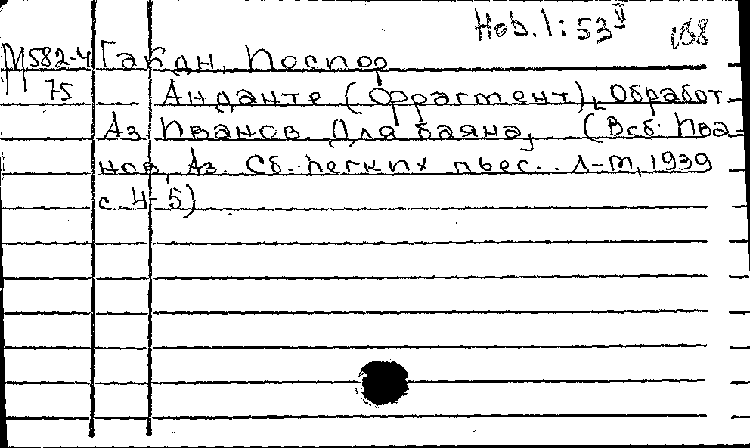 Нов. 1: 53 V 188
М582-4 Гайдн, Иосиф
75 Анданте (Фрагмент), Обработ.
Аз. Иванов. Для баяна, (В сб: Ива-
нов, Аз. Сб. легких пьес. Л-М, 1939
с. 4-5)